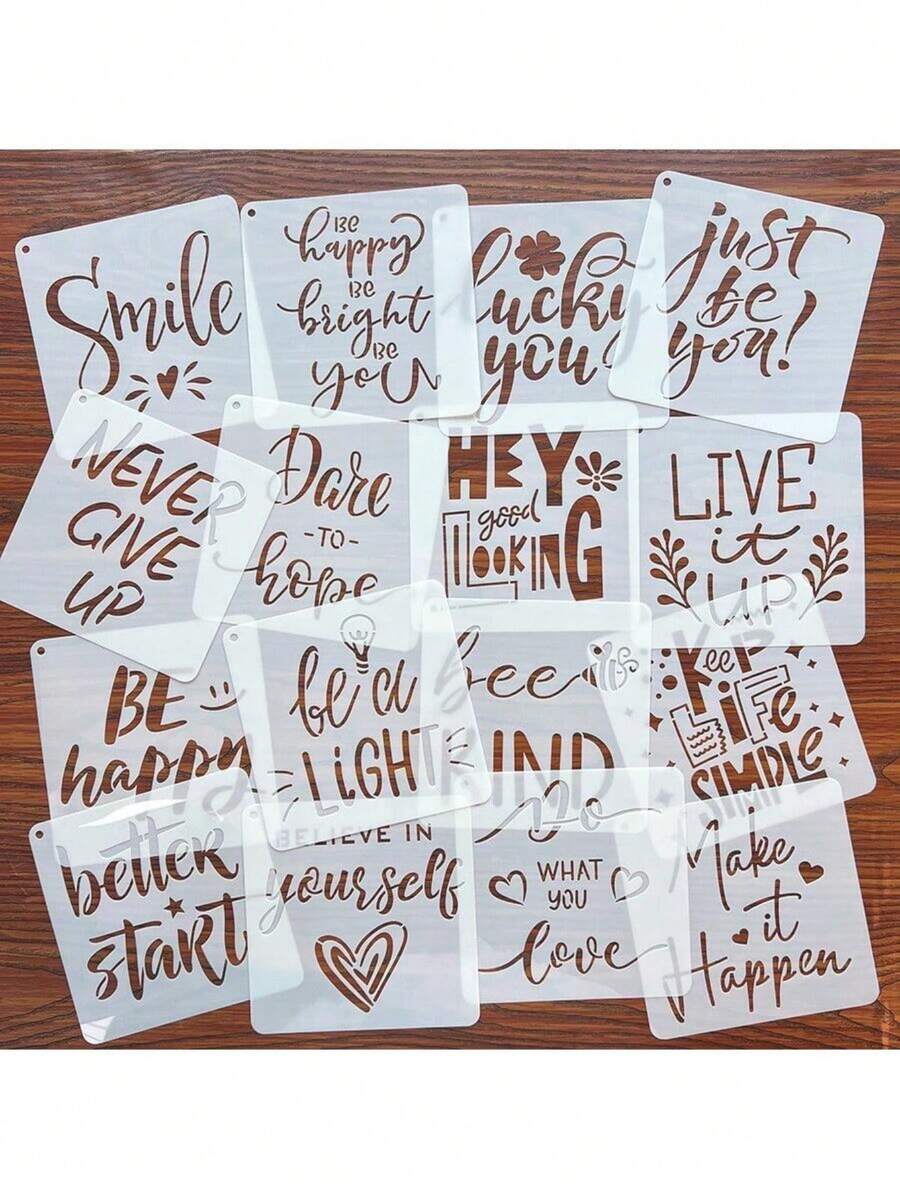 Smile
BE
happy
BE
bright
BE
you
lucky
you
just
be
you!
NEVER
GIVE
UP
Dare
-TO-
hope
HEY
good
LOOKING
LIVE
it
UP
BE
happy
be a
LiGHT
bee
KIND
KeeP
LiFe
SIMPLE
better
start
BELIEVE IN
yourself
Do
WHAT
YOU
love
Make
it
Happen